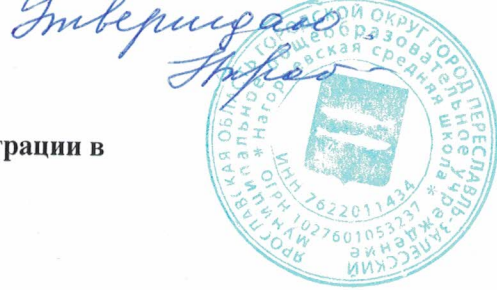 Утверждаю
трации в
ЯРОСЛАВСКАЯ ОБЛАСТЬ ГОРОДСКОЙ ОКРУГ ГОРОД ПЕРЕСЛАВЛЬ-ЗАЛЕССКИЙ
Муниципальное общеобразовательное учреждение
* Нагорьевская средняя школа *
ИНН 7622011434
ОГРН 1027601053237